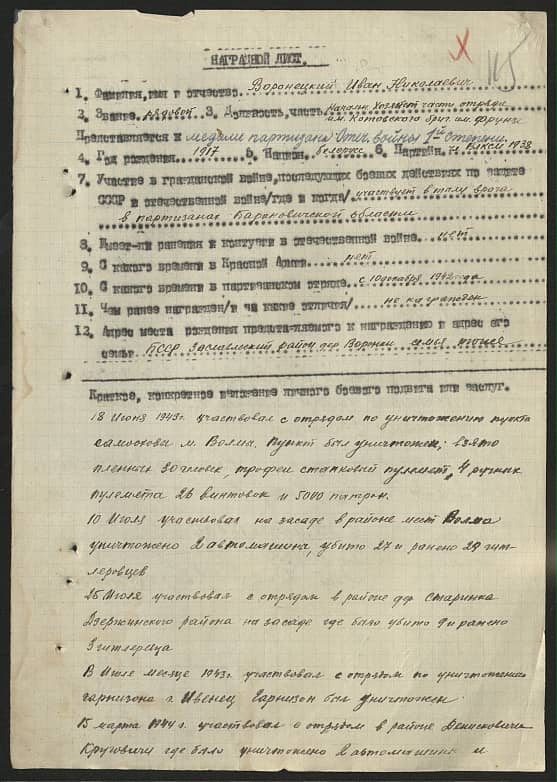 115
НАГРАДНОЙ ЛИСТ.
1. Фамилия, имя и отчество Воронецкий Иван Николаевич
2. Звание рядовой 3. Должность, часть Началь. Хозяйст части отряда
им. Котовского бриг. им. Фрунзе
Представляется к медали партизана Отеч. войны 1ой степени
4. Год рождения 1917 5. Национ. белорус 6. Партийн. чл ВЛКСМ 1938
7. Участие в гражданской войне, последующих боевых действиях по защите
СССР и отечественной войне/где и когда/ участвует в тылу врага
в партизанах Барановичской области
8. Имеет-ли ранения и контузии в отечественной войне нет
9. С какого времени в Красной Армии нет
10. С какого времени в партизанском отряде с 10 октября 1942 года
11. Чем ранее награжден/и за какие отличия/ не награжден
12. Адрес места рождения представляемого к награждению и адрес его
семьи БССР Заславльский район дер Воронки семья
Краткое, конкретное изложение личного боевого подвига или заслуг.
18 Июня 1943г. участвовал с отрядом по уничтожению пункта
самоохови м. Волма. пункт был уничтожен; взято
пленных 30 человек, трофеи станковый пулемет, 4 ручных
пулемета 26 винтовок и 5000 патрон.
10 Июля участвовал на засаде в районе мест Волма
уничтожено 2 автомашины, убито 27 и ранено 29 гит-
леровцев
25 Июля участвовал с отрядом в районе дд. Старинка
Дзержинского района на засаде где было убито 9 и ранено
3 гитлереца
В Июле месяце 1943г. участвовал с отрядом по уничтожению
гарнизона г. Ивенец Гарнизон был уничтожен
15 марта 1944г. участвовал с отрядом в районе Денисковичи
Круговичи где было уничтожено 2 автомашины и